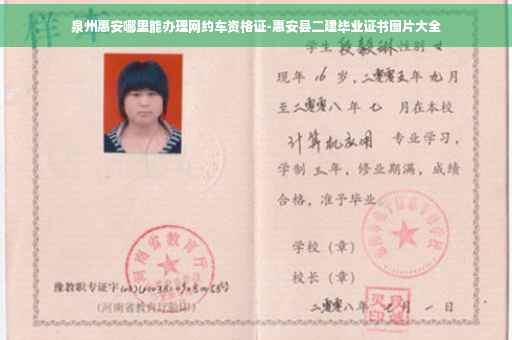 泉州惠安哪里能办理网约车资格证-惠安县二建毕业证书图片大全
样本
学生段毅琳性别女
现年16岁，二零零五年九月
至二零零八年七月在本校
计算机应用专业学习，
学制三年，修业期满，成绩
合格，准予毕业
学校（章）
校长（章）
二零零八年 月一日
河南省教育厅
豫教职专证字
（河南省教育厅验印）